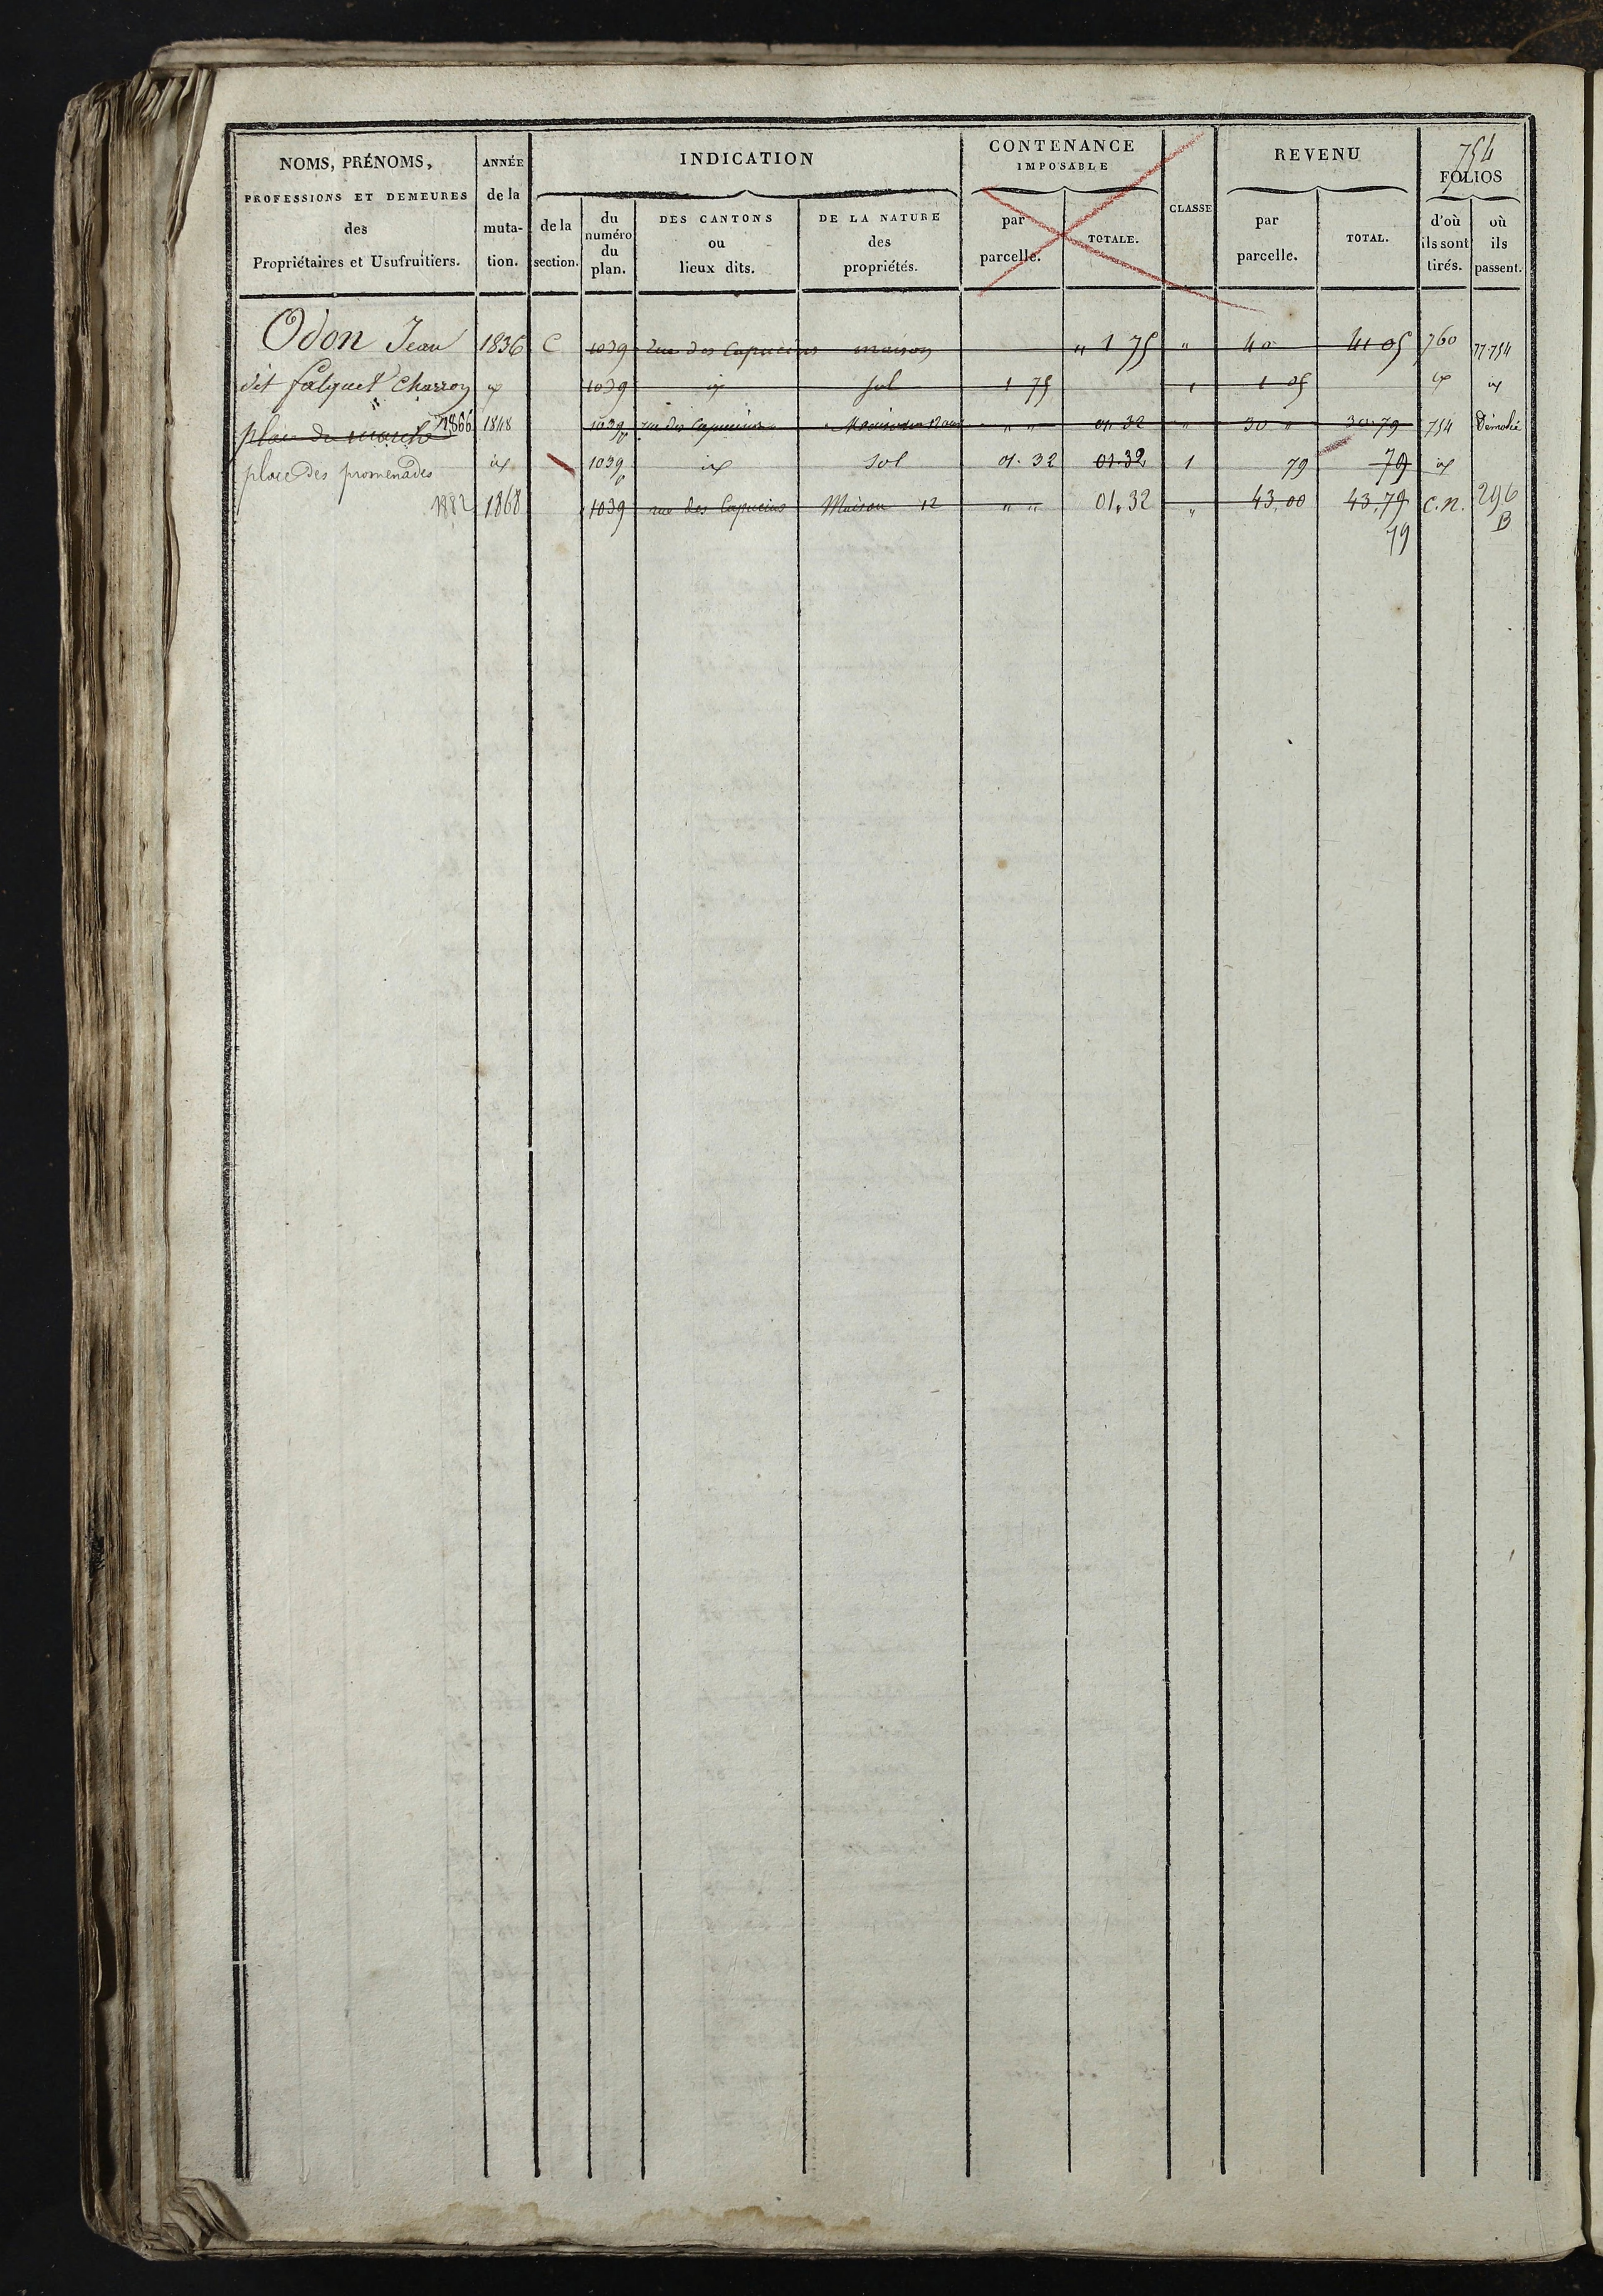 754
NOMS, PRÉNOMS, PROFESSIONS ET DEMEURES des Propriétaires et Usufruitiers.
ANNÉE de la muta- tion.
INDICATION
de la section.
du numéro du plan.
DES CANTONS ou lieux dits.
DE LA NATURE des propriétés.
CONTENANCE IMPOSABLE
par parcelle.
TOTALE.
CLASSE
REVENU
par parcelle.
TOTAL.
FOLIOS
d'où ils sont tirés.
où ils passent.
Odon Jean 1836 C 1039 Rue des Capucins maison " 1 75 " 40 41 05 760 77.754
dit falquet Charron id 1039 id sol 1 75 1 1 05 id id
place du marché 1866 1848 1039p rue des Capucins Maison " " 01.32 " 30 " 30.79 754 Démolie
place des promenades id 1039p id sol 01.32 01.32 1 79 79 id
1882 1868 1039 rue des Capucins Maison 12 " " 01.32 " 43.00 43.79 C.N. 296
79 B